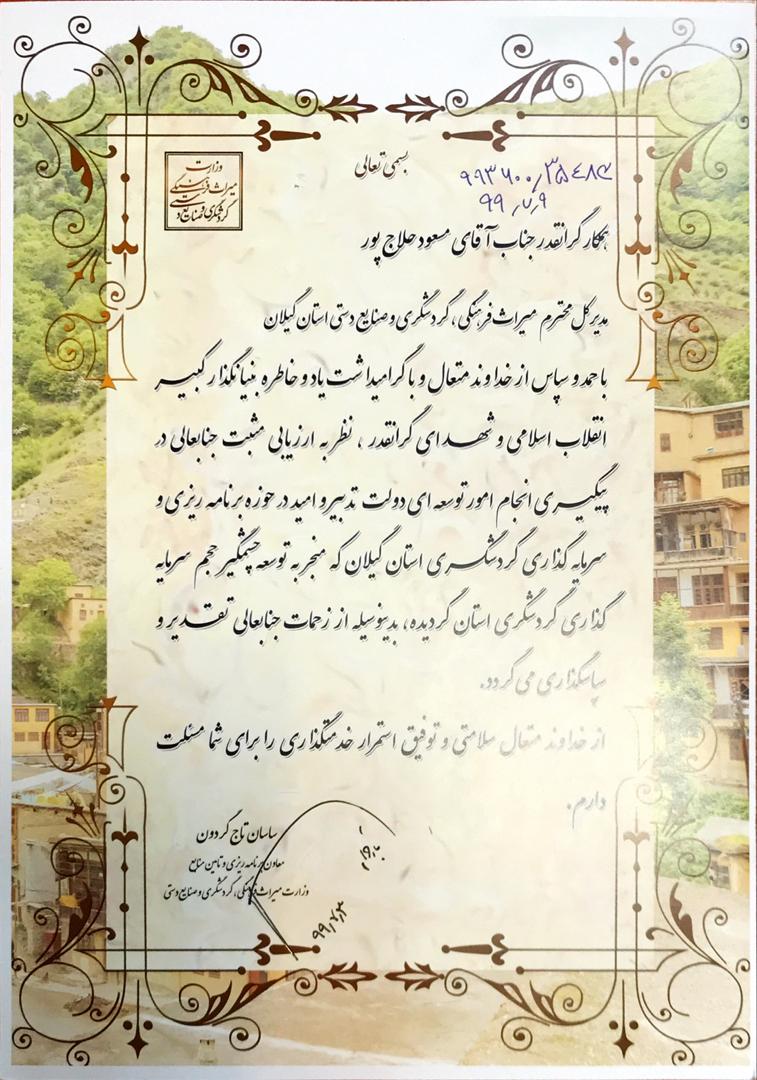 بسمی تعالی
وزارت
میراث فرهنگی
گردشگری و صنایع دستی
۹۹۳۶۰۰٫۳۵۴۸۳
۹۹٫۷٫۹
همکار گرانقدر جناب آقای مسعود حلاج پور
مدیرکل محترم میراث فرهنگی، گردشگری و صنایع دستی استان گیلان
با حمد و سپاس از خداوند متعال و با گرامیداشت یاد و خاطره بنیانگذار کبیر
انقلاب اسلامی و شهدای گرانقدر، نظر به ارزیابی مثبت جنابعالی در
پیگیری انجام امور توسعه ای دولت تدبیر و امید در حوزه برنامه ریزی و
سرمایه گذاری گردشگری استان گیلان که منجر به توسعه چشمگیر حجم سرمایه
گذاری گردشگری استان گردیده، بدینوسیله از زحمات جنابعالی تقدیر و
سپاسگذاری می گردد.
از خداوند متعال سلامتی و توفیق استمرار خدمتگذاری را برای شما مسئلت
دارم.
ساسان تاج گردون
معاون برنامه ریزی و تامین منابع
وزارت میراث فرهنگی، گردشگری و صنایع دستی